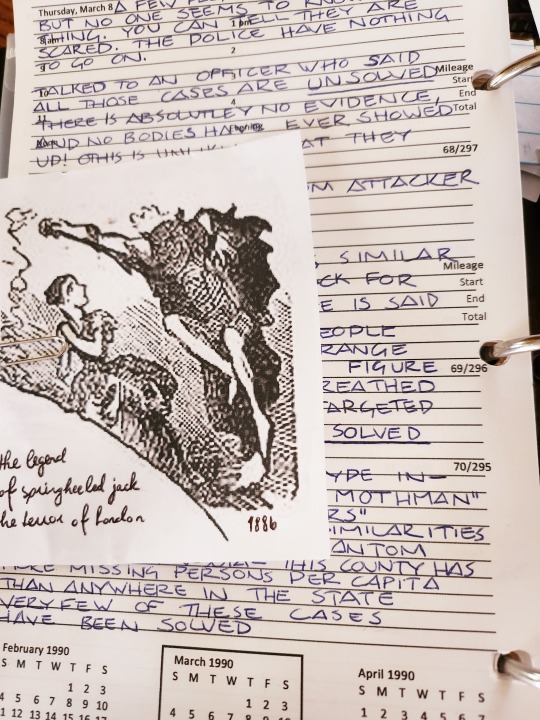 Thursday, March 8
A FEW
BUT NO ONE SEEMS TO KNOW
THING. YOU CAN TELL THEY ARE
SCARED. THE POLICE HAVE NOTHING
TO GO ON.
8am
1pm
2
4
Evening
TALKED TO AN OFFICER WHO SAID
ALL THOSE CASES ARE UNSOLVED
THERE IS ABSOLUTLEY NO EVIDENCE,
AND NO BODIES HAVE EVER SHOWED
UP! THIS IS AT THEY
Mileage
Start
End
Total
68/297
OM ATTACKER
SIMILAR
CK FOR
E IS SAID
Mileage
Start
End
Total
EOPLE
RANGE
FIGURE
69/296
REATHED
ARGETED
SOLVED
70/295
YPE IN-
MOTHMAN"
RS"
IMILARITIES
ANTOM
the legend
of springheeled jack
the terror of London
1886
MISSING PERSONS PER CAPITA
THIS COUNTY HAS
THAN ANYWHERE IN THE STATE
VERY FEW OF THESE CASES
HAVE BEEN SOLVED
February 1990
S M T W T F S
1 2 3
4 5 6 7 8 9 10
11 12 13 14 15 16 17
March 1990
S M T W T F S
1 2 3
4 5 6 7 8 9 10
April 1990
S M T W T F S
1 2 3 4 5 6 7